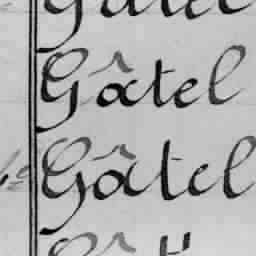 Gâtel
Gâtel
Gâtel